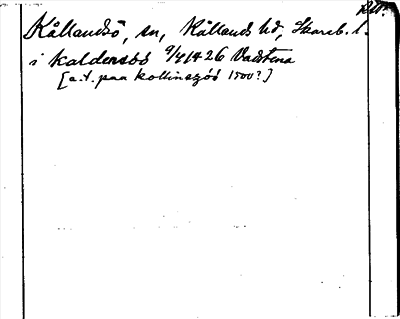 DW.
Kållandsö, sn, Kållands hd, Skarab. l.
i kaldensöö 9/4 1426 Vadstena
[a.t. paa kollinszöö 1500?]